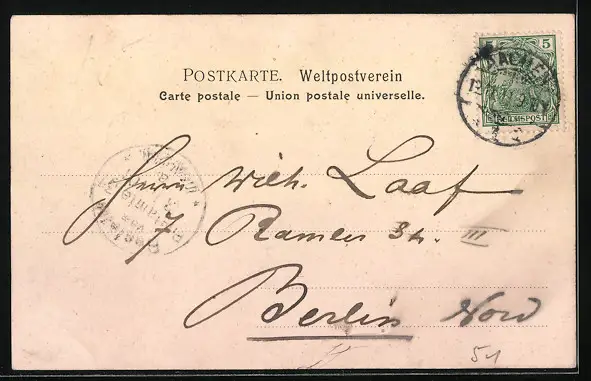 POSTKARTE. Weltpostverein
Carte postale — Union postale universelle.
5
AACHEN
REICHSPOST
Herrn Wilh. Laaf
7 Ramler Str. III
Berlin Nord
51